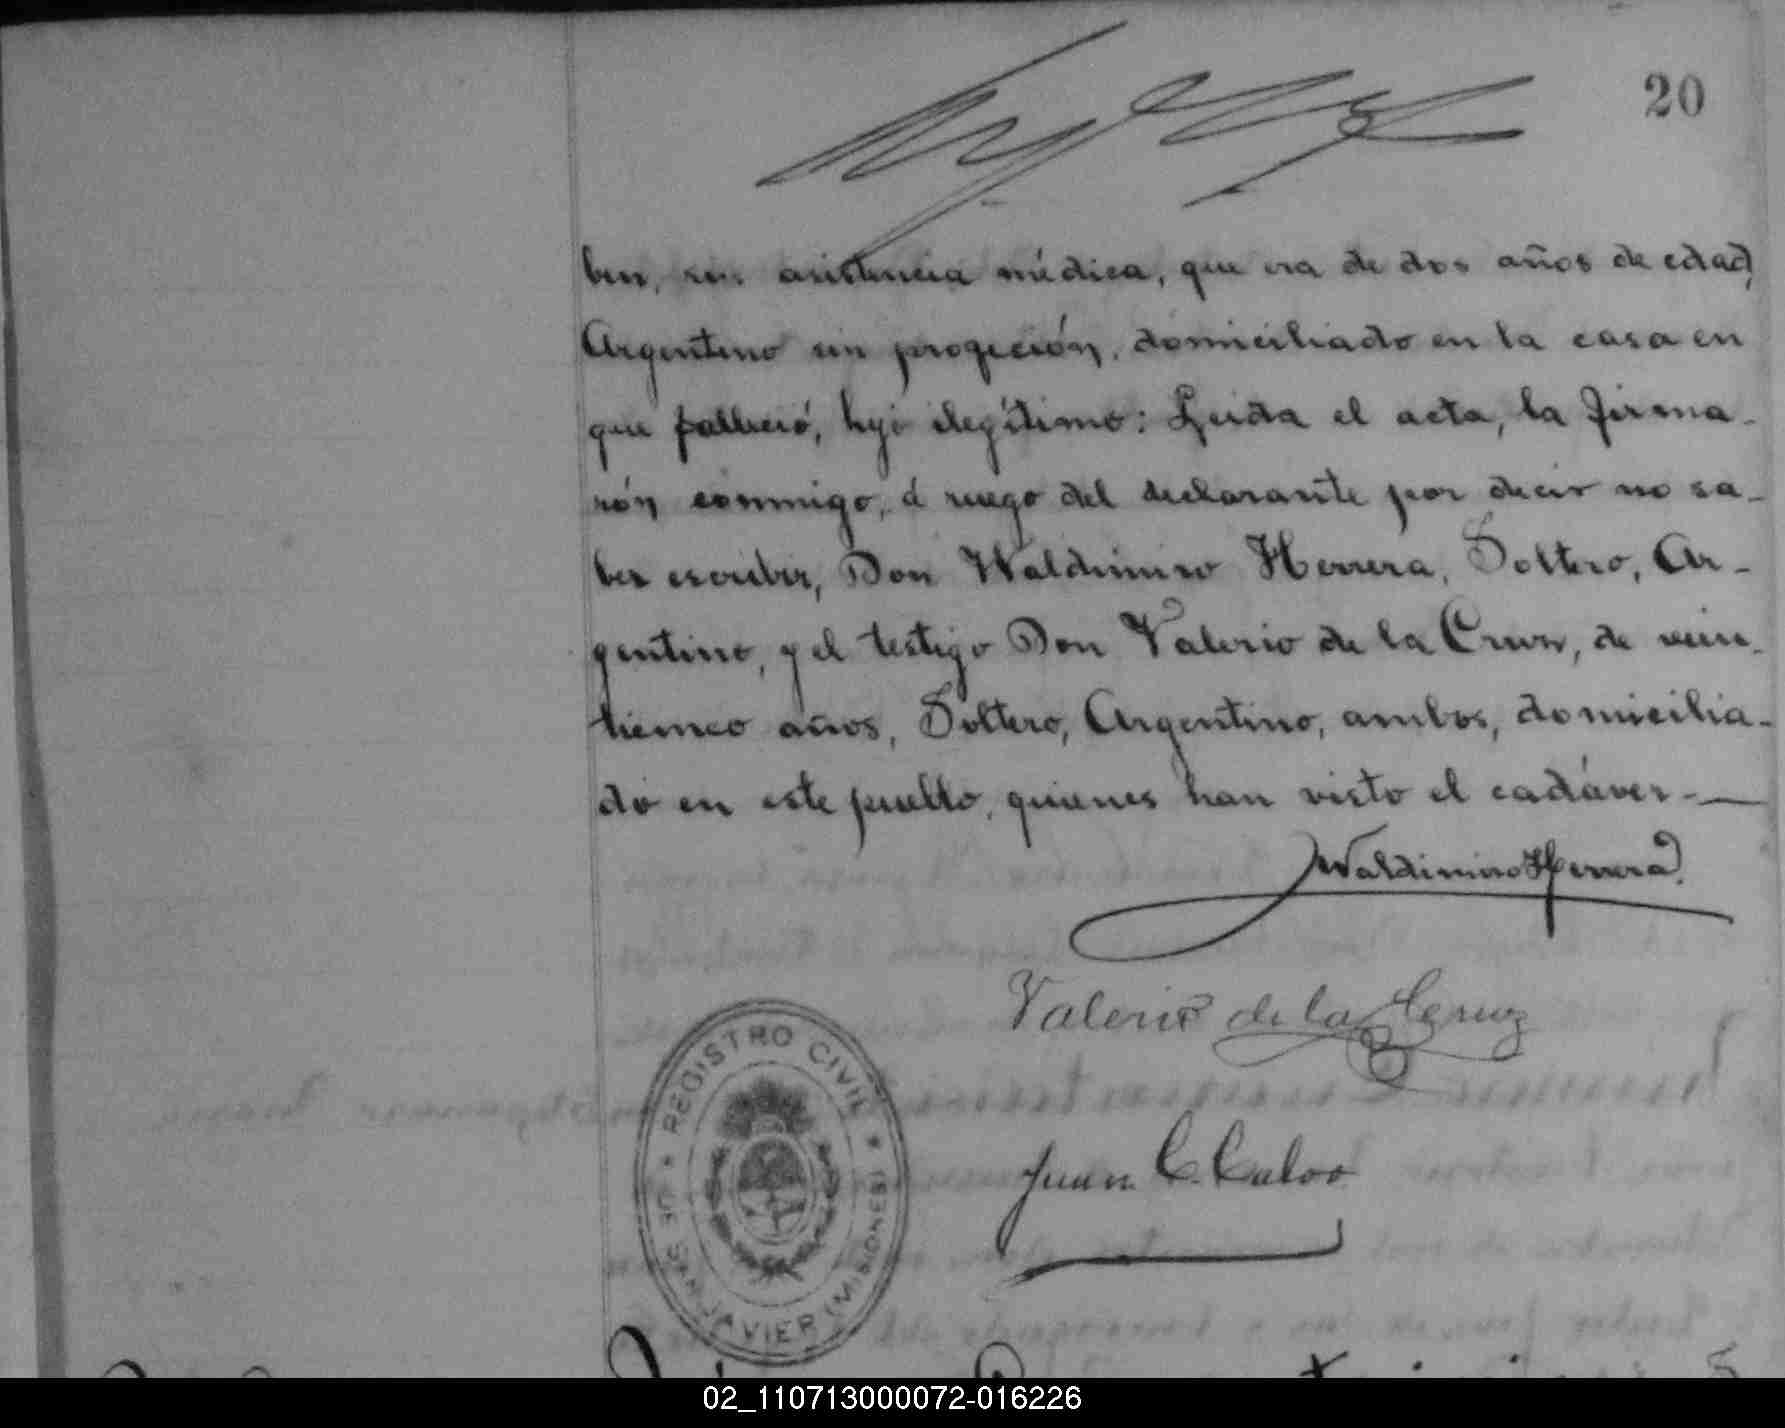 20
ber, sin asistencia médica, que era de dos años de edad,
Argentino sin profeción, domiciliado en la casa en
que falleció, hijo ilegítimo: Leida el acta, la firma-
rón conmigo, á ruego del declarante por decir no sa-
ber escribir, Don Waldimiro Herrera, Soltero, Ar-
gentino, y el testigo Don Valerio de la Cruz, de vein-
ticinco años, Soltero, Argentino, ambos, domicilia-
do en este pueblo, quienes han visto el cadáver-
Waldimiro Herrera
Valerio de la Cruz
Juan C. Calvo
REGISTRO CIVIL
DE SAN JAVIER (MISIONES)
02_110713000072-016226